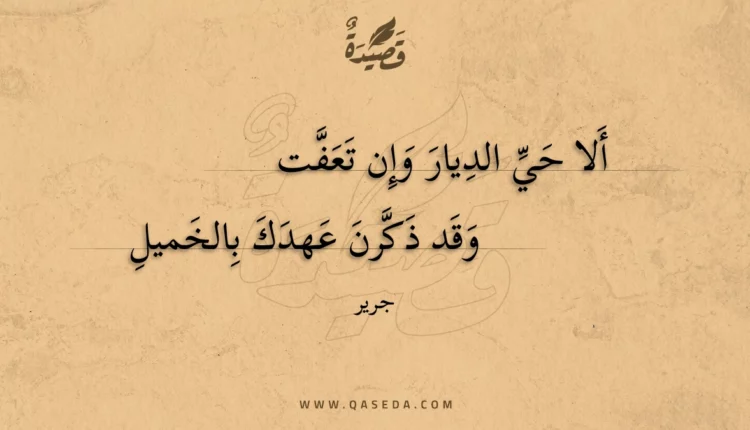 قَصِيدَةٌ
أَلا حَيِّ الدِيارَ وَإِن تَعَفَّت
وَقَد ذَكَّرنَ عَهدَكَ بِالخَميلِ
جرير
WWW.QASEDA.COM